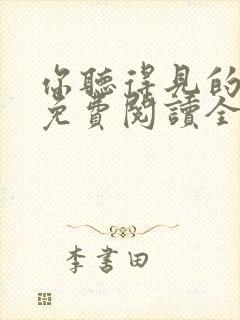 你聽得見的
免費閱讀全
李書田